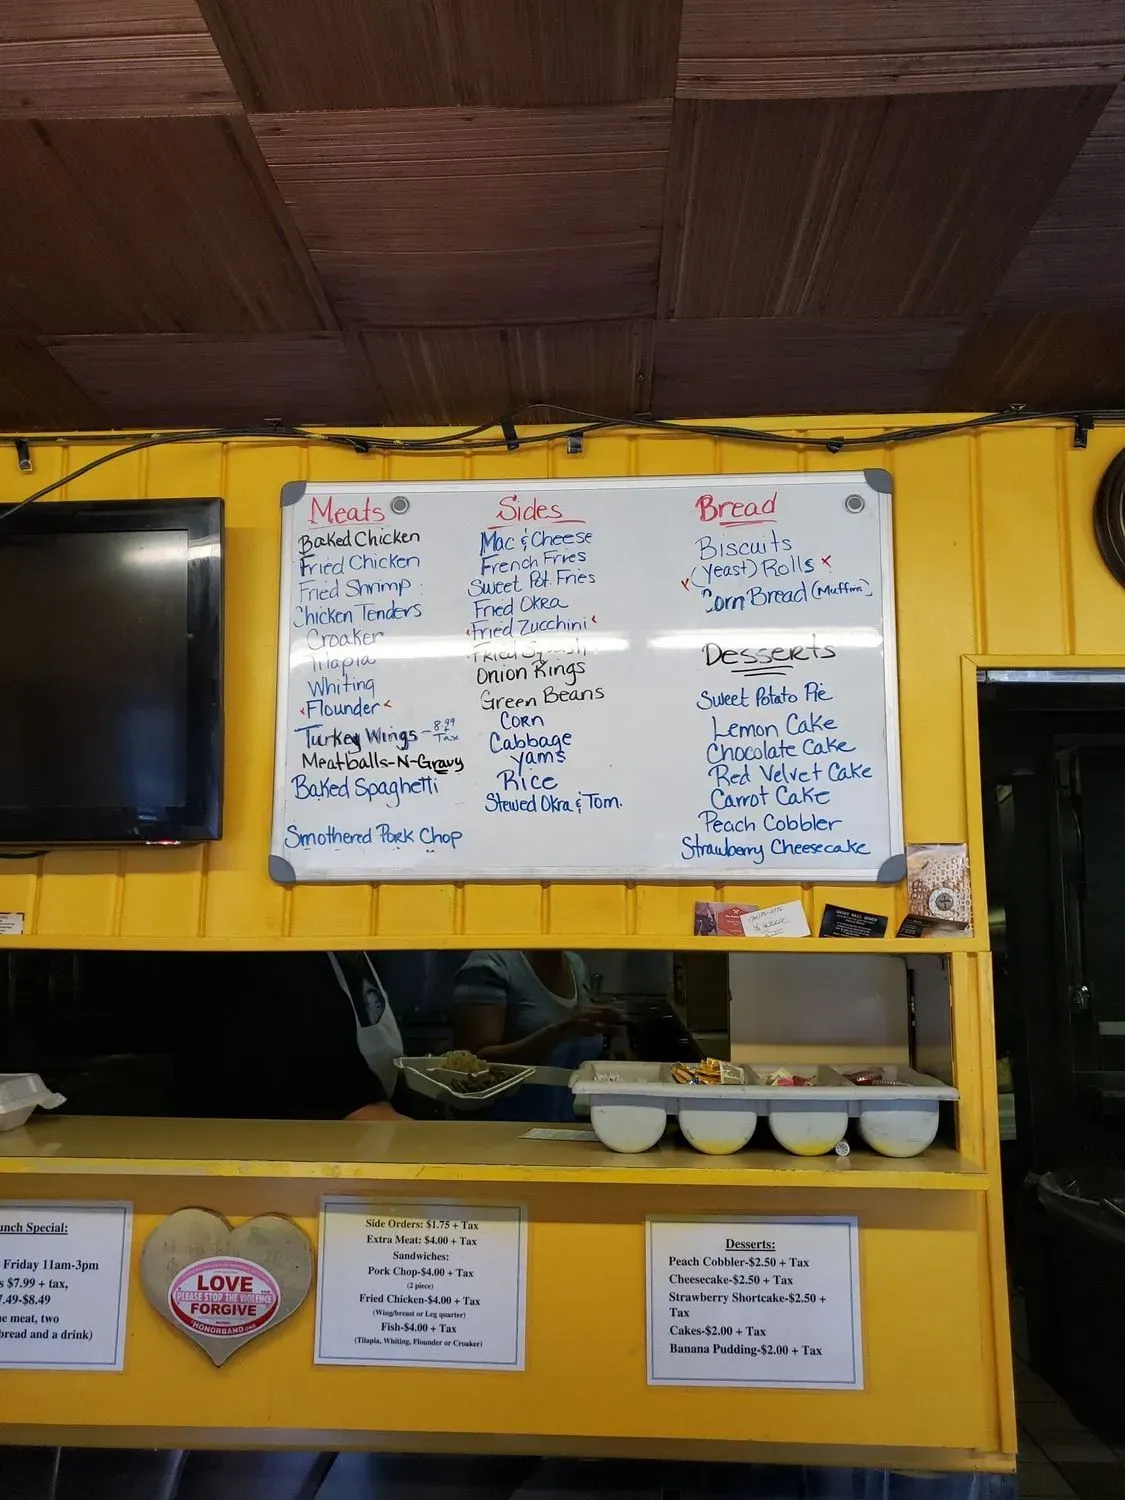 Meats
Baked Chicken
Fried Chicken
Fried Shrimp
Chicken Tenders
Croaker
Tilapia
Whiting
Flounder
Turkey Wings - 8.99 Tax
Meatballs-N-Gravy
Baked Spaghetti
Smothered Pork Chop
Sides
Mac & Cheese
French Fries
Sweet Pot. Fries
Fried Okra
Fried Zucchini
Fried Squash
Onion Rings
Green Beans
Corn
Cabbage
Yams
Rice
Stewed Okra & Tom.
Bread
Biscuits
(Yeast) Rolls x
Corn Bread (Muffins)
Desserts
Sweet Potato Pie
Lemon Cake
Chocolate Cake
Red Velvet Cake
Carrot Cake
Peach Cobbler
Strawberry Cheesecake
unch Special:
Friday 11am-3pm
s $7.99 + tax,
7.49-$8.49
e meat, two
bread and a drink)
LOVE
PLEASE STOP THE VIOLENCE
FORGIVE
HONORBAND.ORG
Side Orders: $1.75 + Tax
Extra Meat: $4.00 + Tax
Sandwiches:
Pork Chop-$4.00 + Tax
(2 piece)
Fried Chicken-$4.00 + Tax
(Wing/breast or Leg quarter)
Fish-$4.00 + Tax
(Tilapia, Whiting, Flounder or Croaker)
Desserts:
Peach Cobbler-$2.50 + Tax
Cheesecake-$2.50 + Tax
Strawberry Shortcake-$2.50 +
Tax
Cakes-$2.00 + Tax
Banana Pudding-$2.00 + Tax